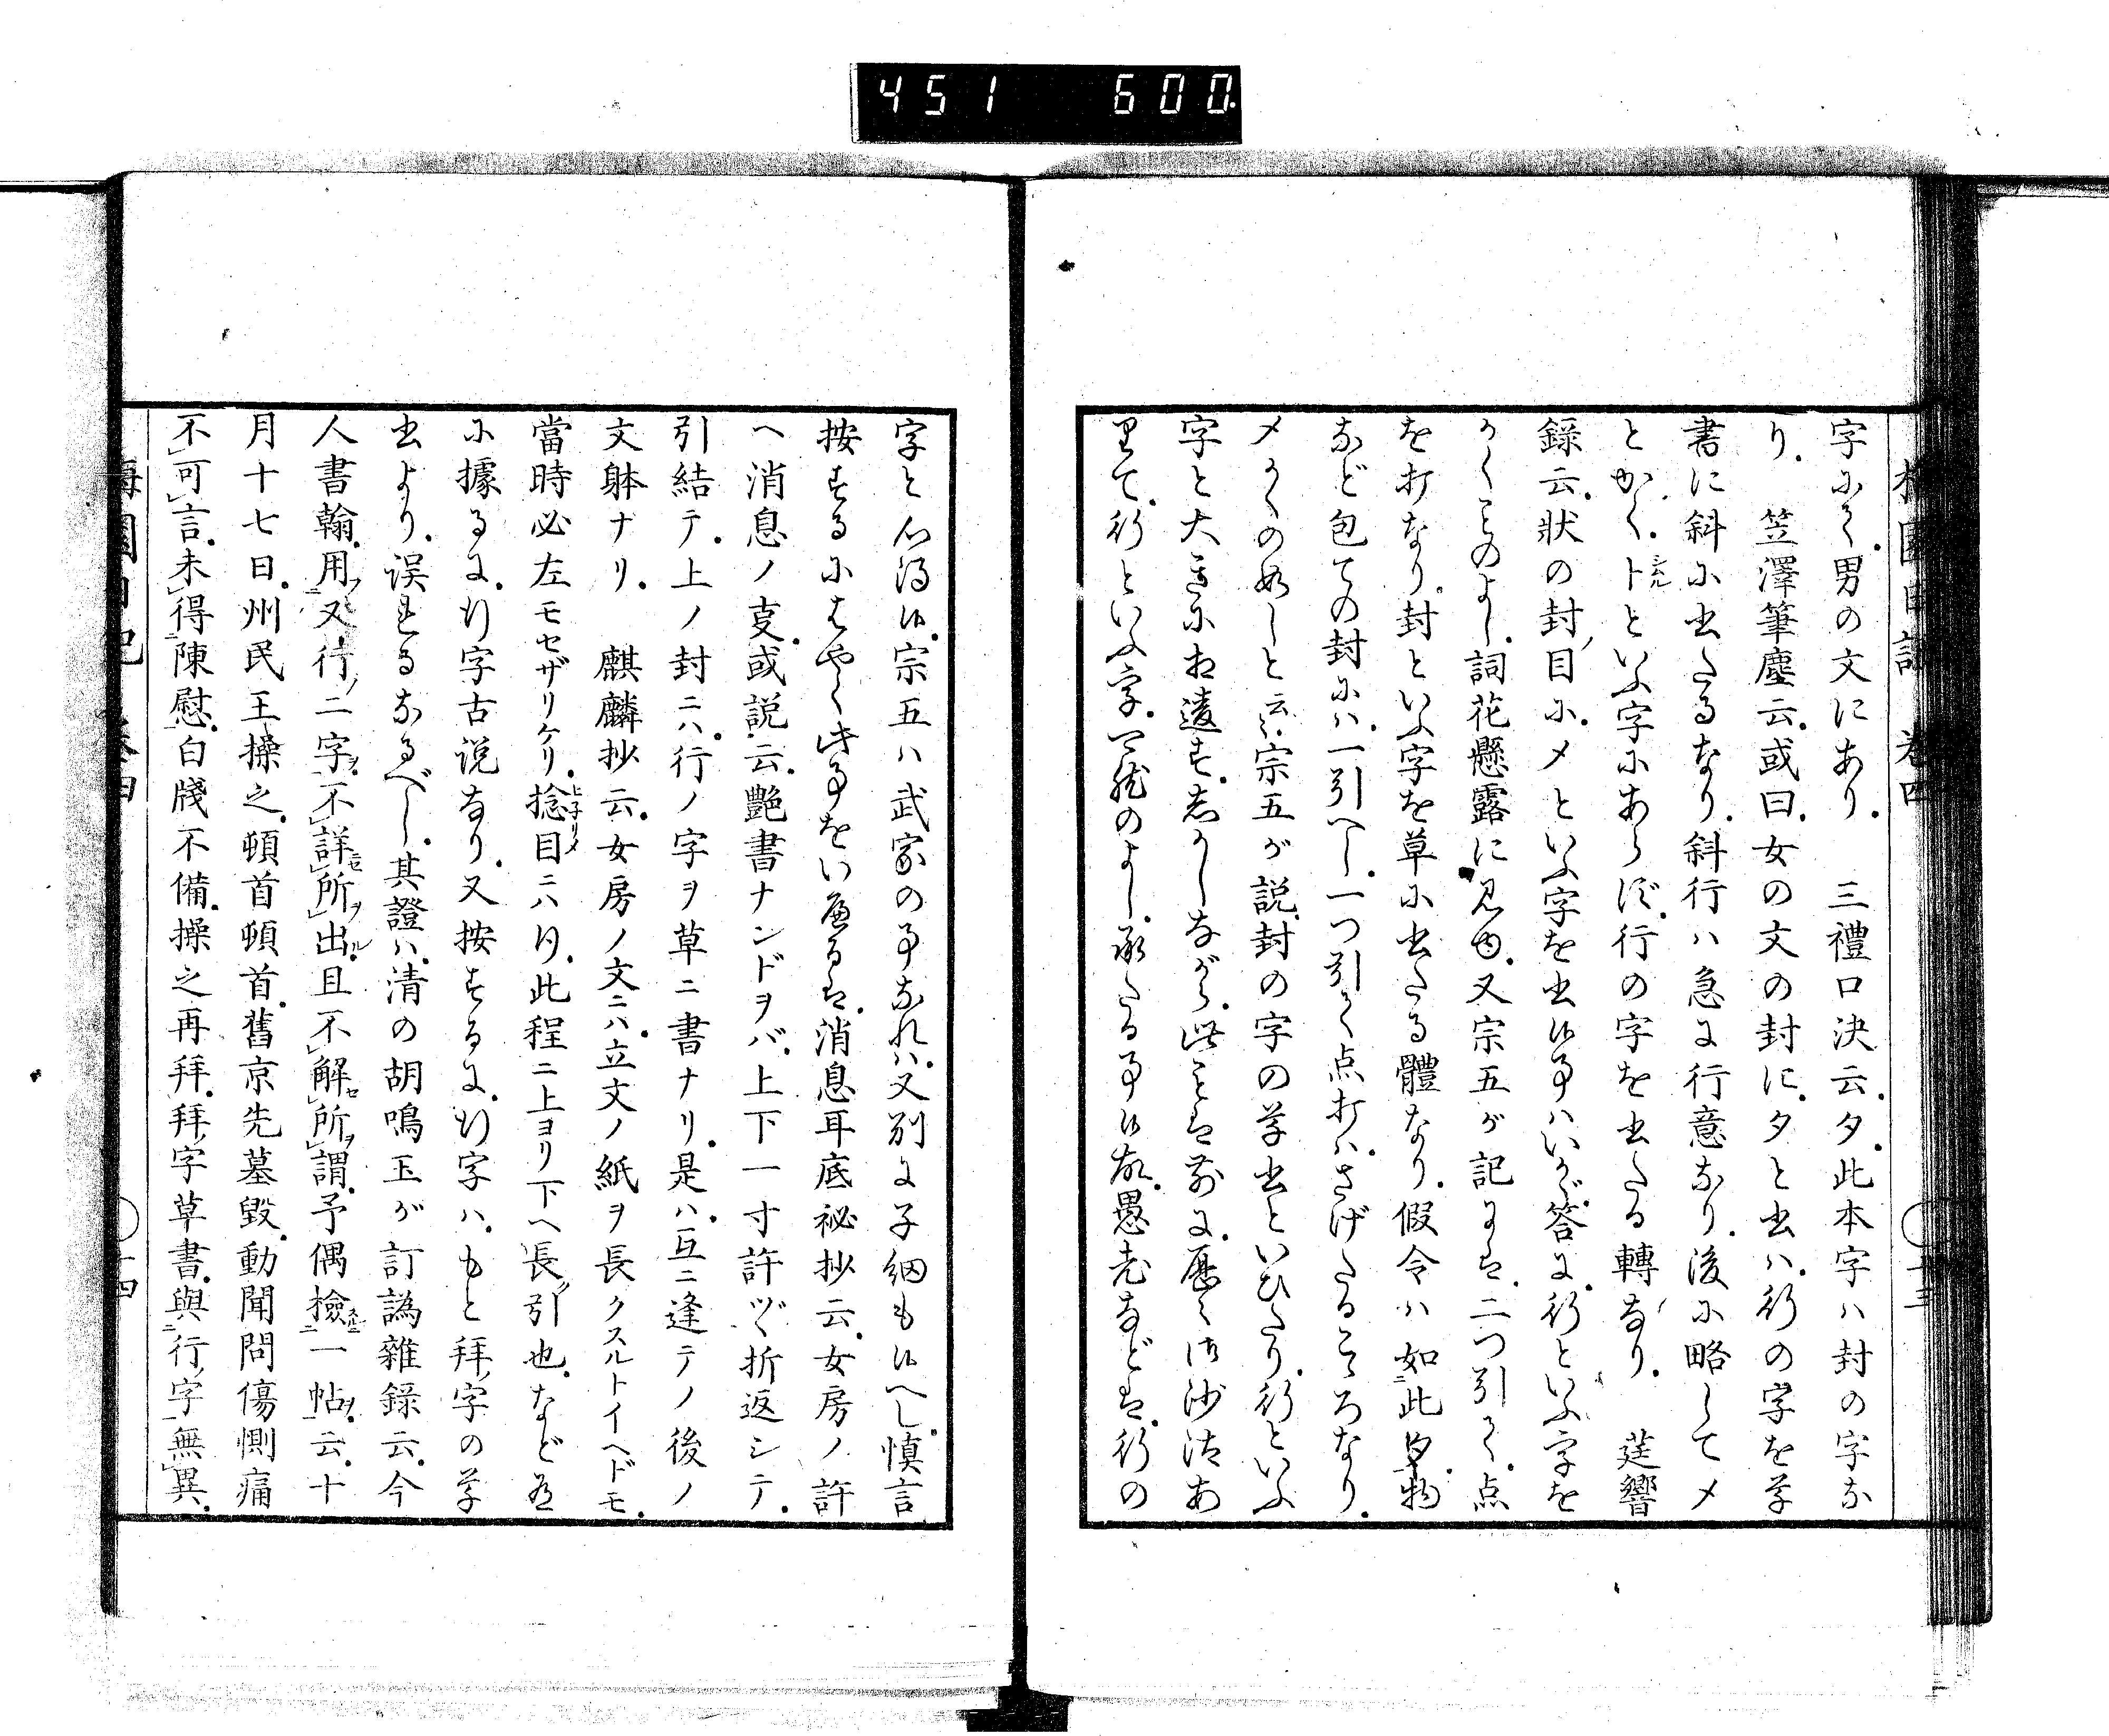 451 600
梅園日記 巻四 十三
字にて男の文にあり。 三禮口决云。夕。此本字ハ封の字な
り。 笠澤筆塵云。或曰。女の文の封に。夕と出ハ。行の字を草
書に斜に出たるなり。斜行ハ急に行意なり。後に略してメ
とかく。トといふ字にあらず。行の字を出たる轉なり。 莛響
錄云。狀の封目に。メといふ字を出候事ハいかゞ。答に。行といふ字を
かくことのよし。詞花懸露に見ゆ。又宗五が記には。二つ引て。点
を打なり。封といふ字を草に出たる體なり。假令ハ如此夕。物
など包ての封にハ。一引へし。一つ引て点打ハ。さげたるこゝろなり。
メかくの如しと云々。宗五が説。封の字の草出といひたり。行といふ
字と大きに相違す。志かしながら。此ことは前に。歴々御沙汰あ
りて。行といふ字。一統のよし。承たる事候故。愚老などは。行の
字と心得候。宗五ハ武家の事なれハ。又別に子細も候へし。慎言
按するにはやく此事をいへるは。消息耳底祕抄云。女房ノ許
ヘ消息ノ㕝。或説云。艶書ナンドヲバ。上下一寸許ヅヽ折返シテ。
引結テ。上ノ封ニハ。行ノ字ヲ草ニ書ナリ。是ハ。互ニ逢テノ後ノ
文躰ナリ。 麒麟抄云。女房ノ文ニハ。立文ノ紙ヲ長クスルトイヘドモ。
當時必左モセザリケリ。捻目ニハ〻。此程ニ上ヨリ下ヘ長引也。など
に據るに。行字古説なり。又按するに。行字ハ。もと拜字の草
出より。誤れるなるべし。其證ハ。清の胡鳴玉が訂譌雜録云。今
人書翰。用又行二字。不詳所出。且不解所謂。予偶檢一帖。云。十
月十七日。州民王操之。頓首頓首。舊京先墓毀。動聞問傷惻痛
不可言。未得陳慰。白牋不備。操之再拜。拜字草書。與行字無異。
梅園日記 巻四 十四